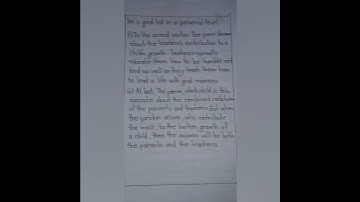 be a good kid in a personal level.
ii) In the second section the poem denoes
about the teacher's contribution to a
child's growth. Teachers normally
educate them how to be humble and
kind as well as they teach them how
to lead a life with good manners.
iii) At last, The poem, which child is this,
narrates about the combined contribution
of the parents and teachers. But when
the question arises, who contribute
the most, to the better growth of
a child, then the answer will be both
the parents and the teachers.